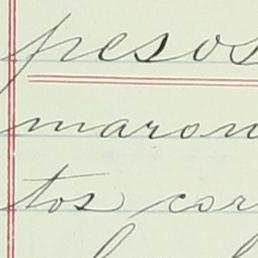 pesos
maron
tos cor